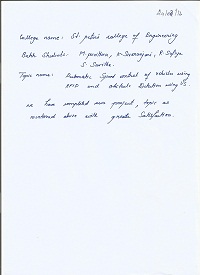 College name: St. peter's college of Engineering
Batch Students: M. pavithra, V. Saranya, R.
S. Saritha.
Topic name: Automatic Speed control of vehicles using
RFID and obstacle Detection using
we have completed our project, topic as
mentioned above with greater Satisfaction.